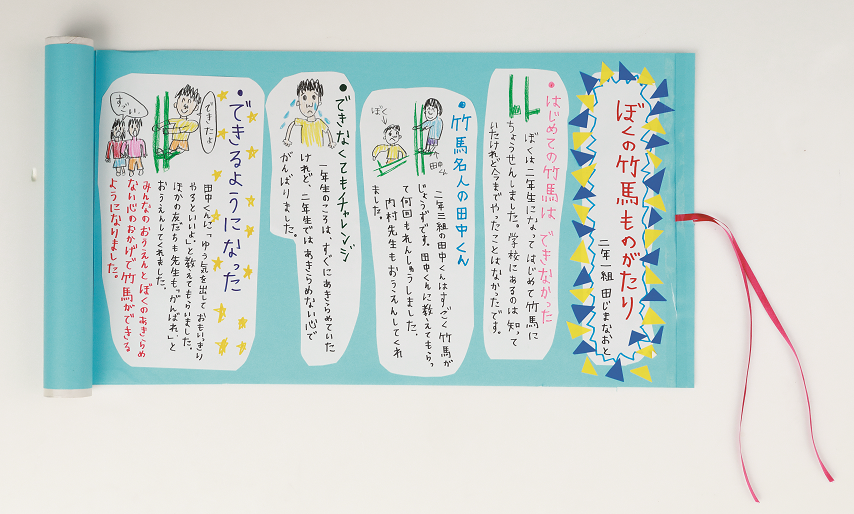 ぼくの竹馬ものがたり
二年一組 田じまなおと
・はじめての竹馬は できなかった
ぼくは二年生になってはじめて竹馬に
ちょうせんしました。学校にあるのは知って
いたけれど今までやったことはなかったです。
・竹馬名人の田中くん
田中くん
ぼく
二年三組の田中くんはすごく竹馬が
じょうずです。田中くんに教えてもらっ
て何回もれんしゅうしました。
内村先生もおうえんしてくれ
ました。
・できなくてもチャレンジ
一年生のころは、すぐにあきらめていた
けれど、二年生ではあきらめない心で
がんばりました。
・できるようになった
できたよ
すごい。
田中くんに「ゆう気を出しておもいっきり
やるといいよ。」と教えてもらいました。
ほかの友だちも先生も「がんばれ。」と
おうえんしてくれました。
みんなのおうえんとぼくのあきらめ
ない心のおかげで竹馬ができる
ようになりました。